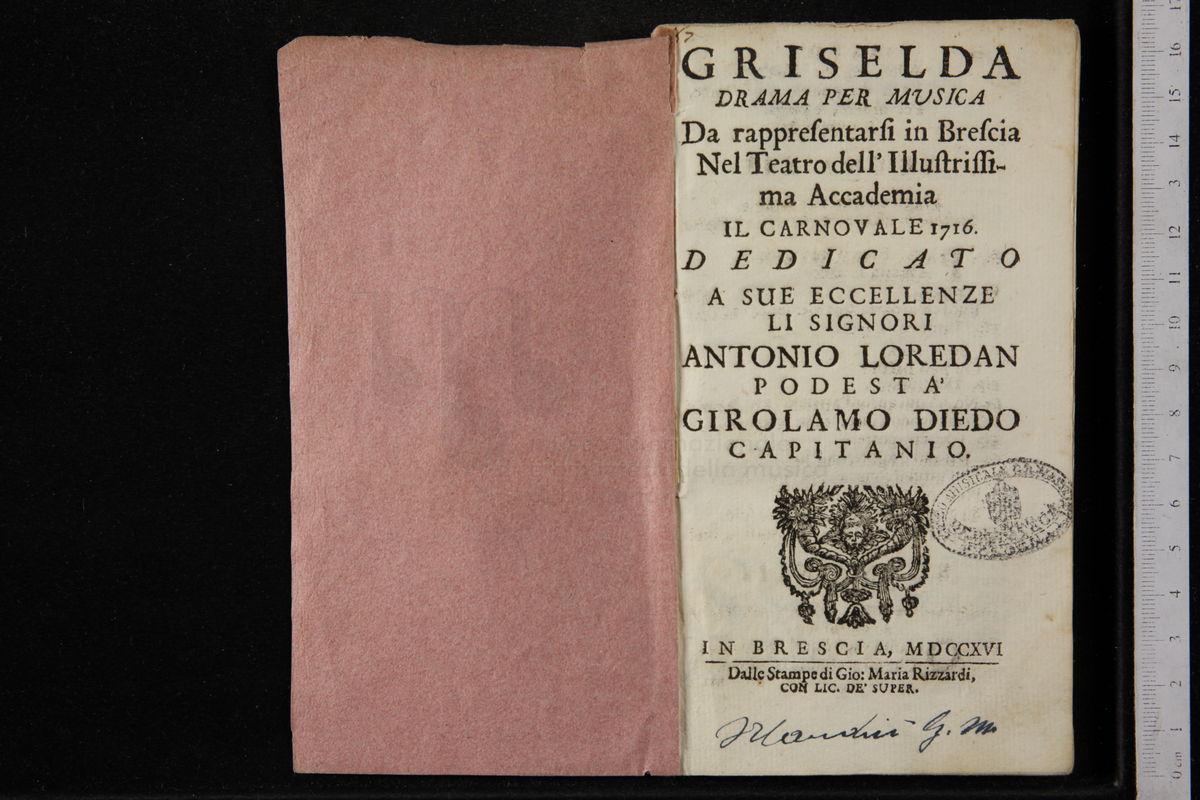 GRISELDA
DRAMA PER MUSICA
Da rappreſentarſi in Breſcia
Nel Teatro dell' Illuſtriſſi-
ma Accademia
IL CARNOVALE 1716.
DEDICATO
A SUE ECCELLENZE
LI SIGNORI
ANTONIO LOREDAN
PODESTA'
GIROLAMO DIEDO
CAPITANIO.
della musica
IN BRESCIA, MDCCXVI
Dalle Stampe di Gio: Maria Rizzardi,
CON LIC. DE' SUPER.
G. M.
0 cm 1 2 3 4 5 6 7 8 9 10 11 12 3 14 15 16 17